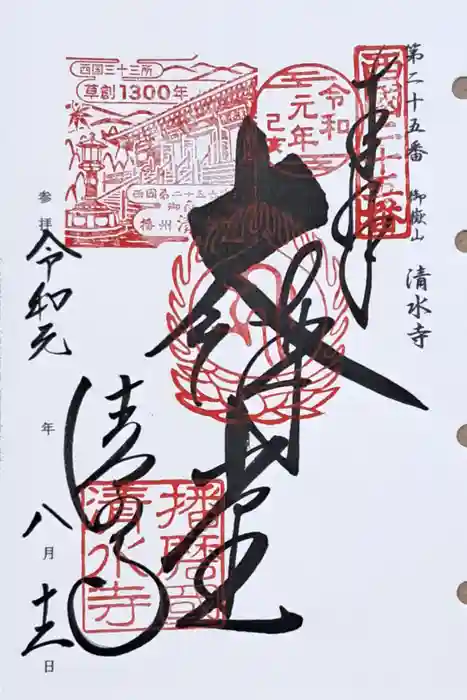 第二十五番 御嶽山 清水寺
奉拝
西國二十五番
令和
元年
己亥
西国三十三所
草創1300年
西国第二十五
播州
大講堂
播磨國
清水寺
清水寺
参拝 令和元年八月 日